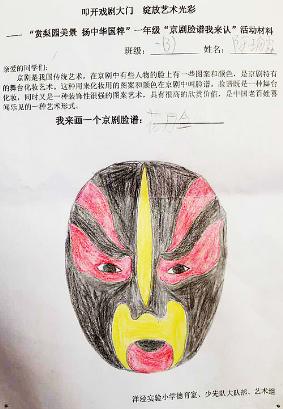 叩开戏剧大门 绽放艺术光彩
—— “赏梨园美景 扬中华国粹”一年级“京剧脸谱我来认”活动材料
班级：一(3) 姓名：
亲爱的同学们：
京剧是我国传统艺术，在京剧中有些人物的脸上有一些图案和颜色，是京剧特有
的舞台化妆艺术，这种用来化妆用的图案和颜色在京剧中叫脸谱，脸谱既是一种舞台
化妆，同时又是一种装饰性很强的图案艺术，具有很高的欣赏价值，是中国老百姓喜
闻乐见的一种艺术形式。
我来画一个京剧脸谱：
洋泾实验小学德育室、少先队大队部、艺术组